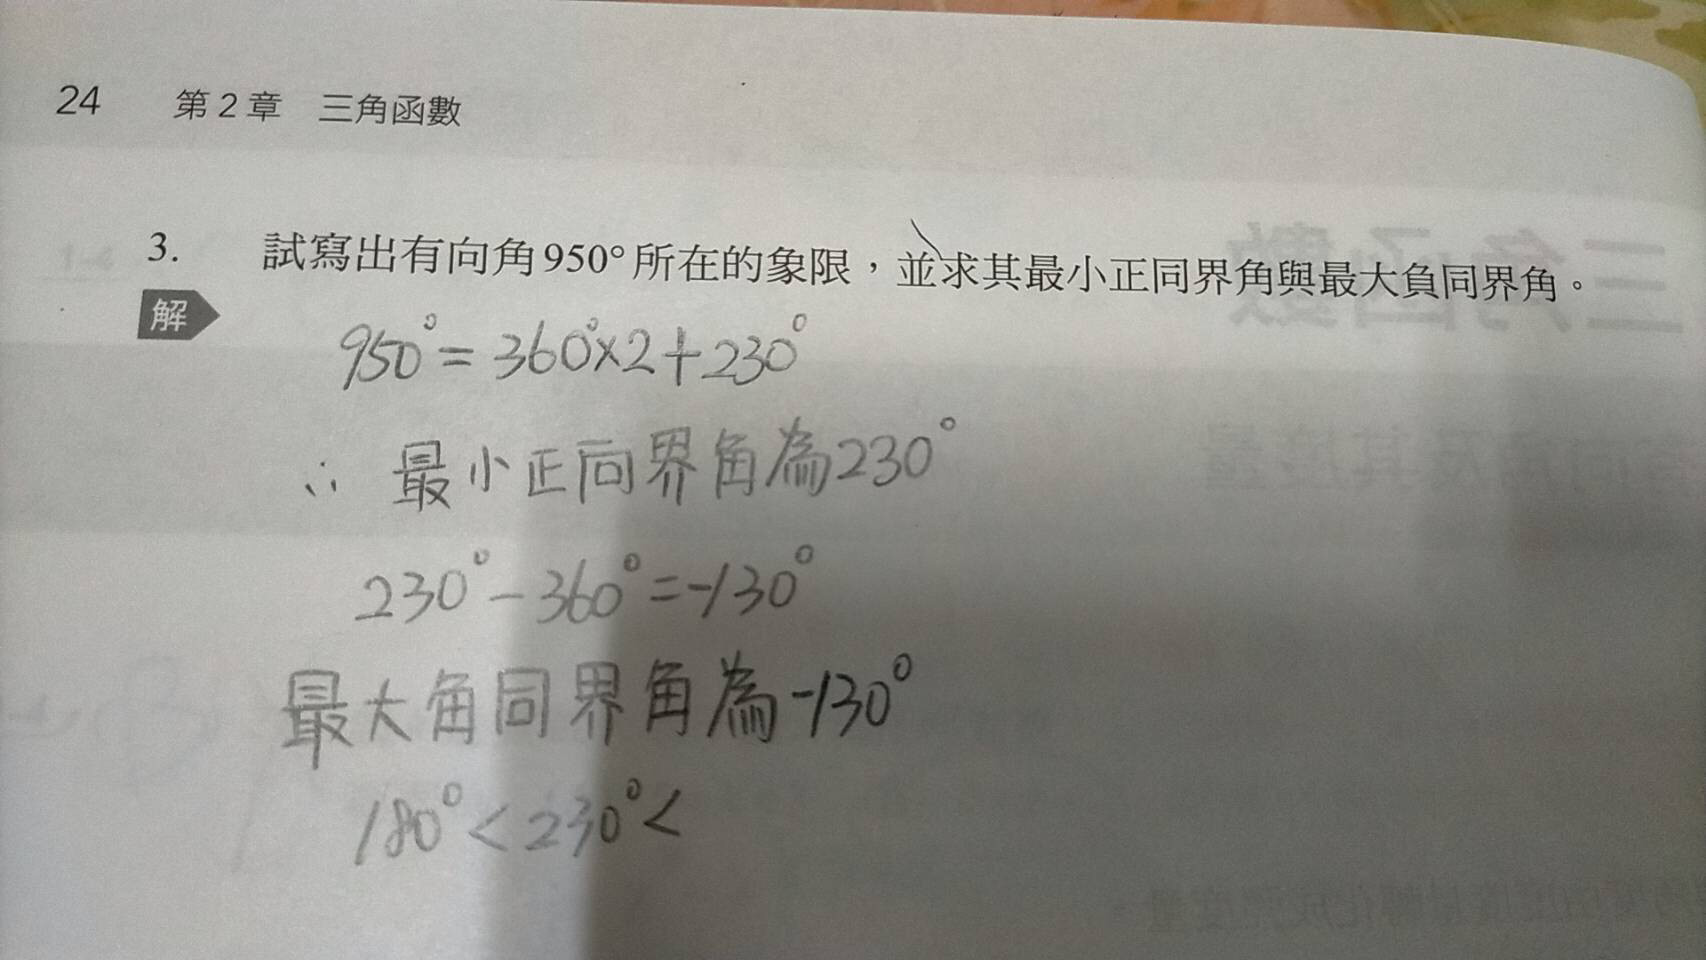 24 第2章 三角函數
3. 試寫出有向角950°所在的象限，並求其最小正同界角與最大負同界角。
解
950°=360°×2+230°
∴ 最小正同界角為230°
230°-360°=-130°
最大角同界角為-130°
180°<230°<